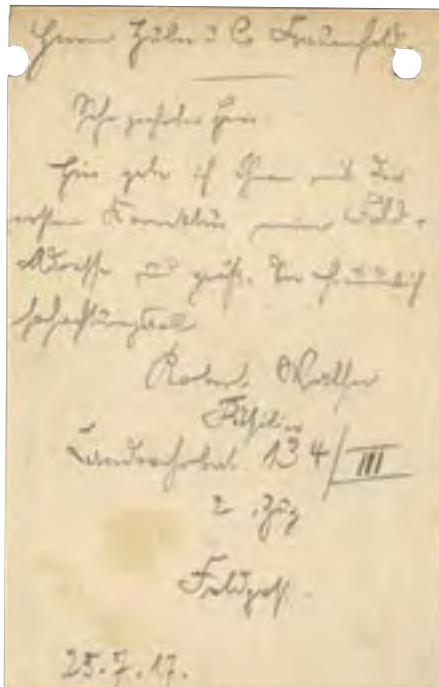 Herrn Huber & Co Frauenfeld
Sehr geehrter Herr.
Hier gebe ich Ihnen mit der
ersten Korrektur meine Feld-
Adresse und grüße Sie freundlich
hochachtungsvoll
Robert Walser
Füsilier
Landwehrbat. 134/III
2. Zug
Feldpost.
25.7.17.